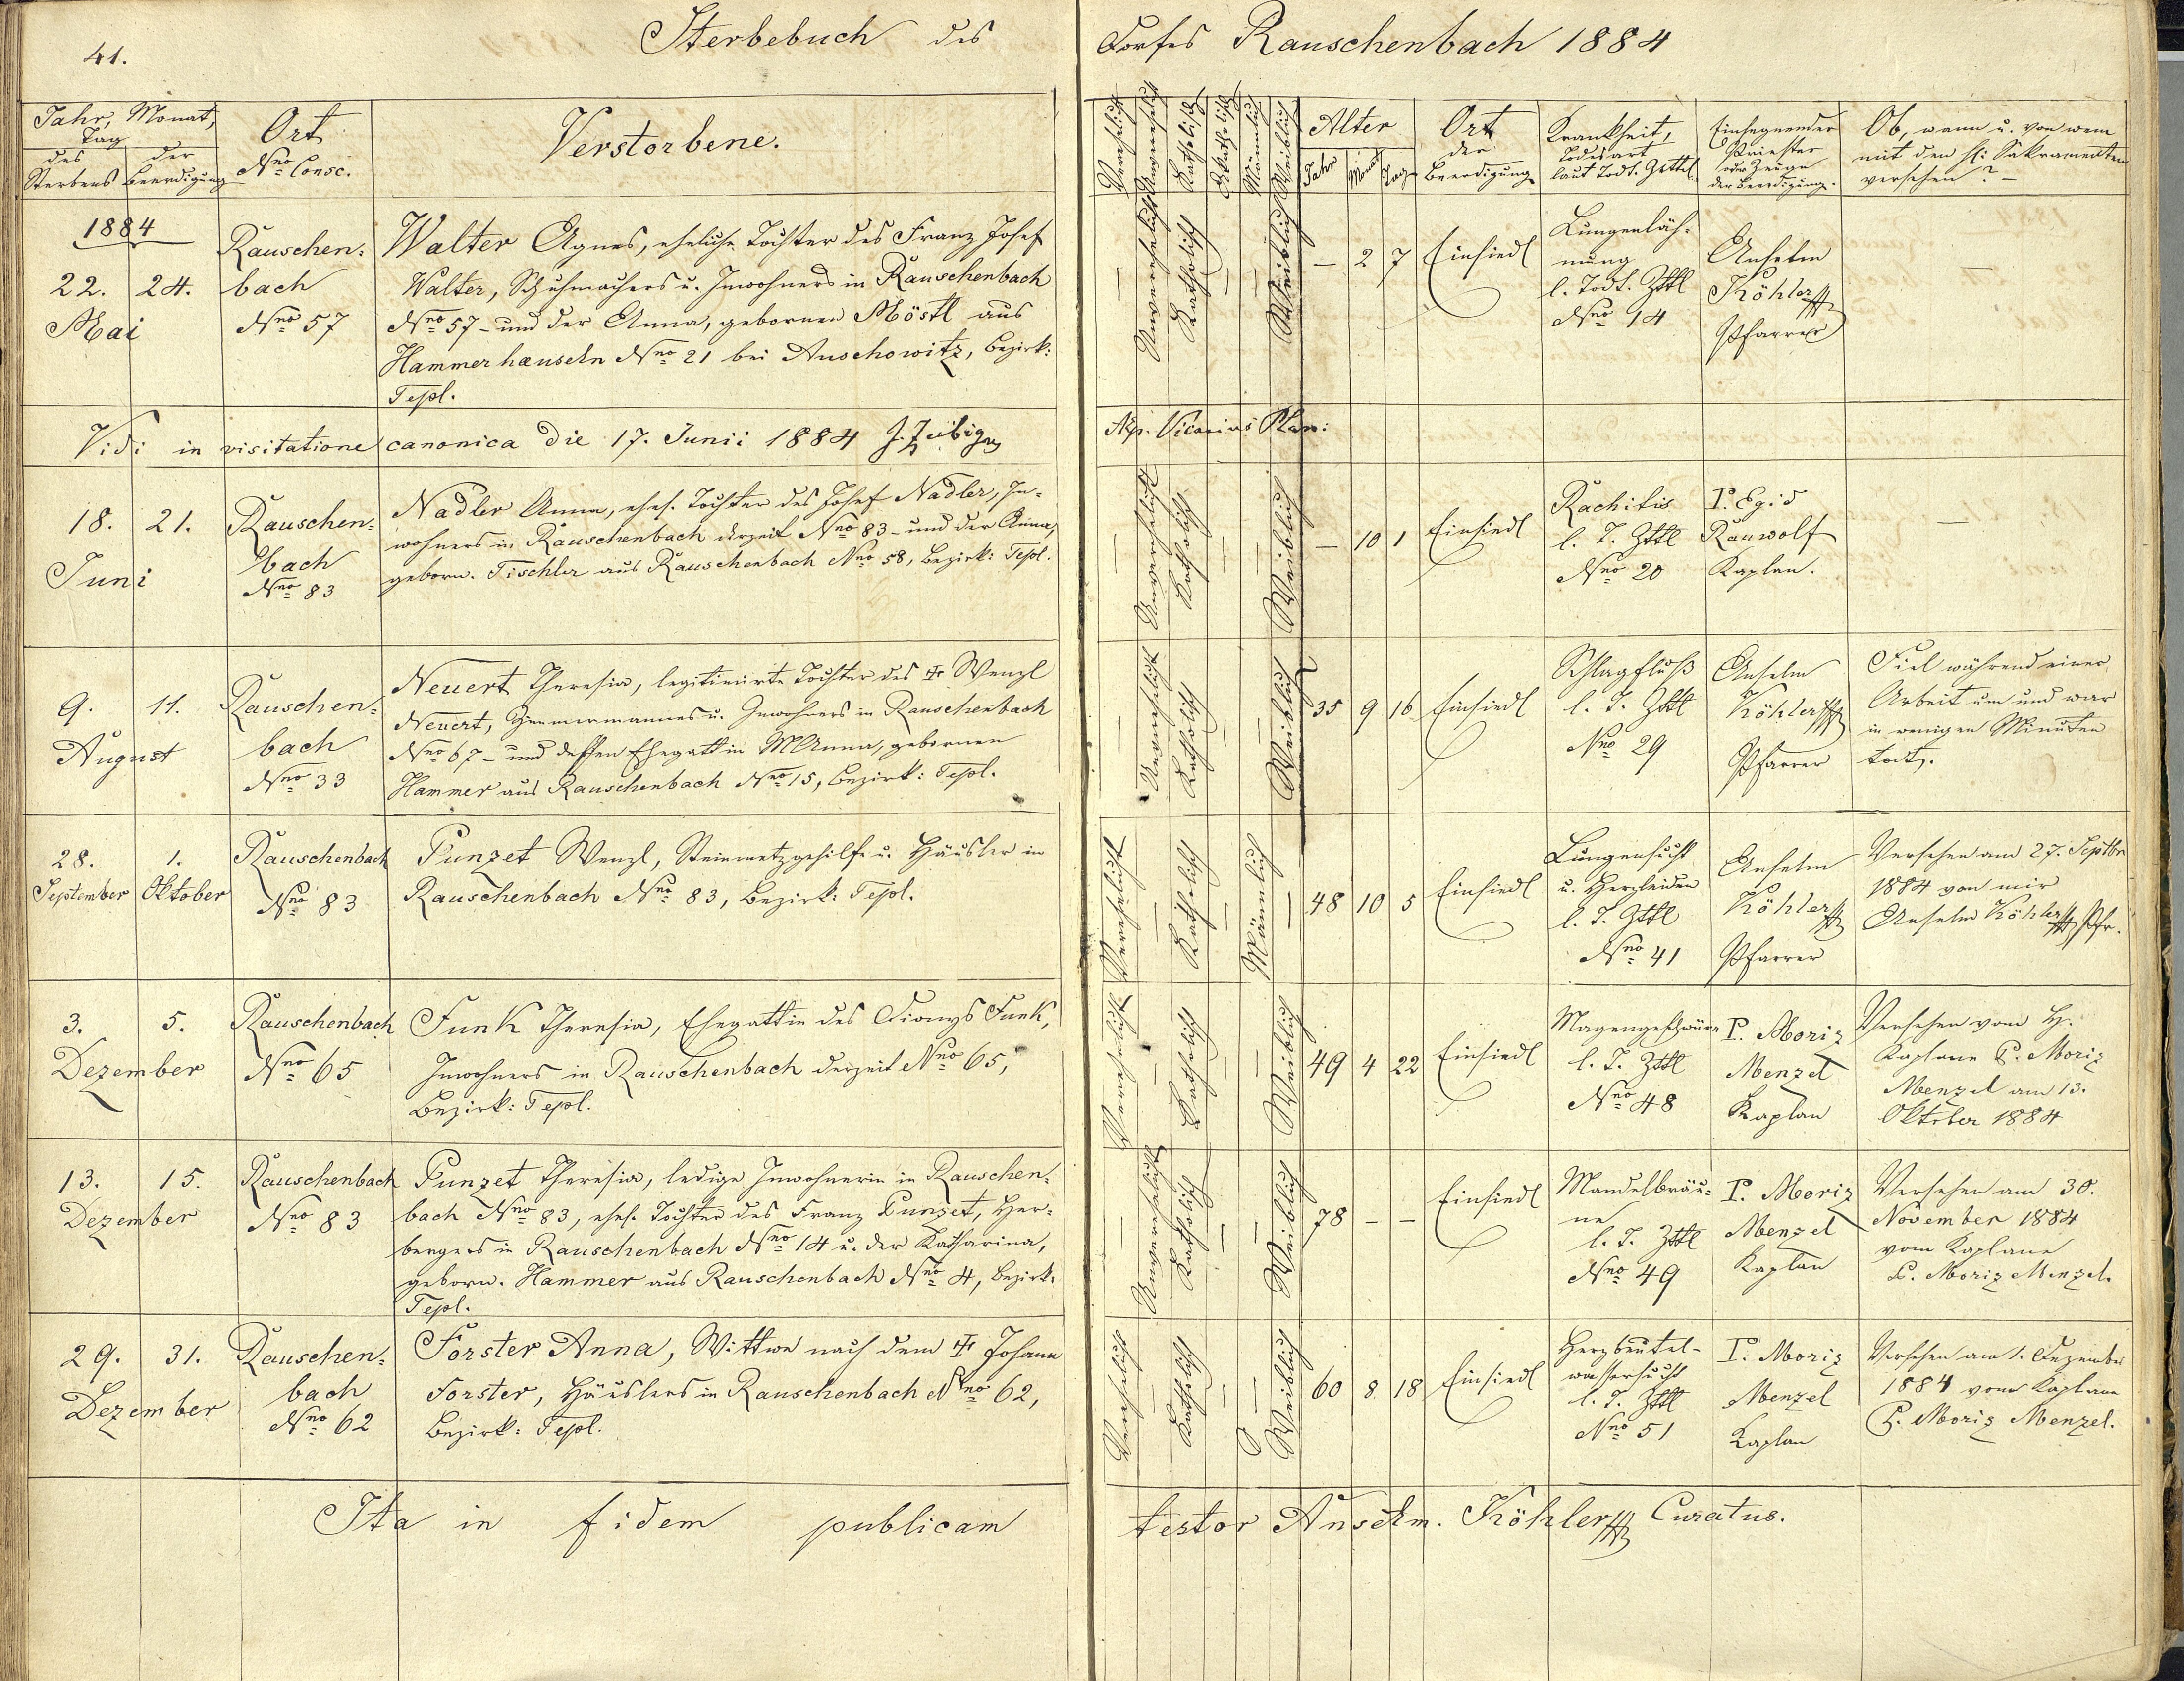 41.
Sterbebuch des Dorfes Rauschenbach 1884
Jahr, Monat, Tag
des Sterbens
der Beerdigung
Ort
Nro Consc.
Verstorbene.
Verehelicht
Unverehelicht
Katholisch
Akatholisch
Männlich
Weiblich
Alter
Jahr
Monat
Tag
Ort
der
Beerdigung
Krankheit,
Todesart
laut Todt. Zettel
Einsegnender
Priester
oder Zeuge
der Beerdigung.
Ob, wann u. von wem
mit den hl: Sakramenten
versehen? –
1884
22. 24.
Mai
Rauschen=
bach
Nro 57
Walter Agnes, eheliche Tochter des Franz Josef
Walter, Schuhmachers u. Inwohners in Rauschenbach
Nro 57 – und der Anna, gebornen Möstl aus
Hammerhäuseln Nro 21 bei Auschowitz, Bezirk:
Tepl.
—
Unverehelicht
Katholisch
—
—
Weiblich
— 2 7
Einsiedl
Lungenläh=
mung
l. Todt. Zttl
Nro 14
Anselm
Köhler
Pfarrer
—
Vidi in visitatione canonica die 17. Junii 1884 J.
Vicarius Plan:
18. 21.
Juni
Rauschen=
bach
Nro 83
Nadler Anna, ehel. Tochter des Josef Nadler, In=
wohners in Rauschenbach derzeit Nro 83 – und der Anna,
geborn. Tischler aus Rauschenbach Nro 58, Bezirk: Tepl.
—
Unverehelicht
Katholisch
—
—
Weiblich
— 10 1
Einsiedl
Rachitis
l. T. Zttl
Nro 20
P. Egid
Rauwolf
Kaplan.
—
9. 11.
August
Rauschen=
bach
Nro 33
Neuert Theresia, legitimirte Tochter des ✝ Wenzl
Neuert, Zimmermannes u. Inwohners in Rauschenbach
Nro 67 – und dessen Ehegattin MAnna, gebornen
Hammer aus Rauschenbach Nro 15, Bezirk: Tepl.
—
Unverehelicht
Katholisch
—
—
Weiblich
35 9 16
Einsiedl
Schlagfluß
l. T. Zttl
Nro 29
Anselm
Köhler
Pfarrer
Fiel während einer
Arbeit um und war
in wenigen Minuten
todt.
28. 1.
September Oktober
Rauschenbach
Nro 83
Punzet Wenzl, Steinmetzgehilfe u. Häusler in
Rauschenbach Nro 83, Bezirk: Tepl.
Verehelicht
—
Katholisch
—
Männlich
—
48 10 5
Einsiedl
Lungensucht
u. Herzleiden
l. T. Zttl
Nro 41
Anselm
Köhler
Pfarrer
Versehen am 27. Septbr
1884 von mir
Anselm Köhler Pfr.
3. 5.
Dezember
Rauschenbach
Nro 65
Funk Theresia, Ehegattin des Dionys Funk,
Inwohners in Rauschenbach derzeit Nro 65,
Bezirk: Tepl.
Verehelicht
—
Katholisch
—
—
Weiblich
49 4 22
Einsiedl
Magengeschwüre
l. T. Zttl
Nro 48
P. Moriz
Menzel
Kaplan
Versehen vom H.
Kaplane P. Moriz
Menzel am 13.
Oktober 1884
13. 15.
Dezember
Rauschenbach
Nro 83
Punzet Theresia, ledige Inwohnerin in Rauschen=
bach Nro 83, ehel. Tochter des Franz Punzet, Her=
bergers in Rauschenbach Nro 14 u. der Katharina,
geborn. Hammer aus Rauschenbach Nro 4, Bezirk:
Tepl.
—
Unverehelicht
Katholisch
—
—
Weiblich
78 – –
Einsiedl
Mandelbräu=
ne
l. T. Zttl
Nro 49
P. Moriz
Menzel
Kaplan
Versehen am 30.
November 1884
vom Kaplane
P. Moriz Menzel.
29. 31.
Dezember
Rauschen=
bach
Nro 62
Forster Anna, Wittwe nach dem ✝ Johann
Forster, Häuslers in Rauschenbach Nro 62,
Bezirk: Tepl.
Verehelicht
—
Katholisch
—
—
Weiblich
60 8 18
Einsiedl
Herzbeutel-
wassersucht
l. T. Zttl
Nro 51
P. Moriz
Menzel
Kaplan
Versehen am 1. Dezember
1884 vom Kaplane
P. Moriz Menzel.
Ita in fidem publicam testor Anselm. Köhler Curatus.